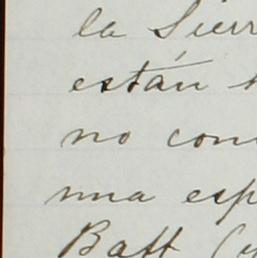 la Sierr
están
no con
una esp
Batt